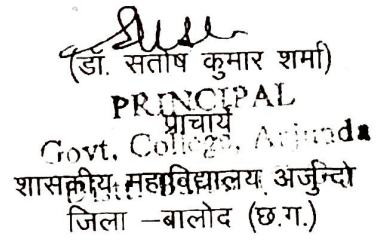 (डॉ. सतोष कुमार शर्मा)
PRINCIPAL
प्राचार्य
Govt. College, Arjunda
शासकीय महाविद्यालय अर्जुन्दो
जिला –बालोद (छ.ग.)